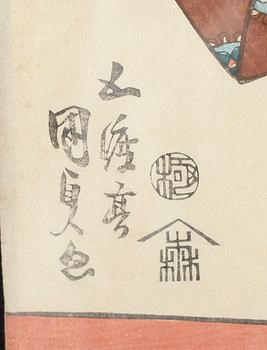 五渡亭
国貞画
極
森